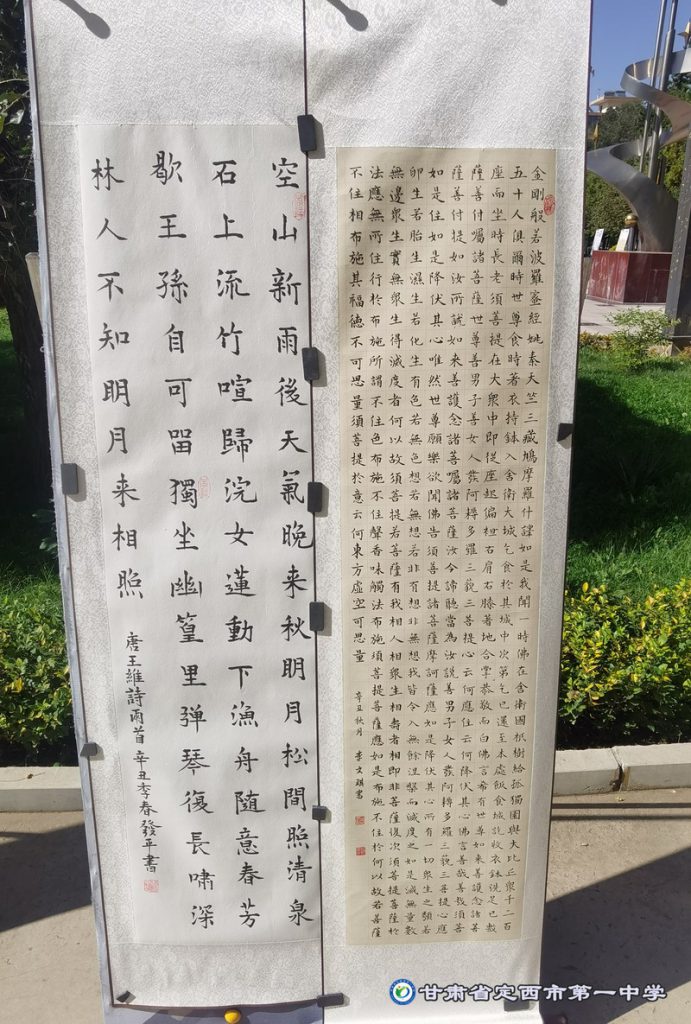 金剛般若波羅蜜經姚秦天竺三藏鳩摩羅什譯如是我聞一時佛在舍衛國祇樹給孤獨園與大比丘眾千二百
五十人俱爾時世尊食時著衣持鉢入舍衛大城乞食於其城中次第乞已還至本處飯食訖收衣鉢洗足已敷
座而坐時長老須菩提在大眾中即從座起偏袒右肩右膝著地合掌恭敬而白佛言希有世尊如来善護念諸菩
薩善付囑諸菩薩世尊善男子善女人發阿耨多羅三藐三菩提心云何應住云何降伏其心佛言善哉善哉須菩
薩善付提如汝所說如来善護念諸菩囑諸菩薩汝今諦聽當為汝說善男子女人發阿耨多羅三藐三菩提心應
如是住如是降伏其心唯然世尊願樂欲聞佛告須菩提諸菩薩摩訶薩應如是降伏其心所有一切眾生之類若
卵生若胎生濕生若化生有色若無色想若無想若非有想非無想我皆令入無餘涅槃而滅度之如是滅無量數
無邊眾生實無眾生得滅度者何以故須菩提若菩薩有我相人相眾生相壽者相即非菩薩復次須菩提菩薩於
法應無所住行於布施所謂不住色布施不住聲香味觸法布施須菩提菩薩應如是布施不住於何以故若菩薩
不住相布施其福德不可思量須菩提於意云何東方虛空可思量
辛丑秋月 李文琪書
空山新雨後天氣晚来秋明月松間照清泉
石上流竹喧歸浣女蓮動下漁舟隨意春芳
歇王孫自可留獨坐幽篁里弹琴復長嘯深
林人不知明月来相照
唐王維詩兩首辛丑李春發平書
甘肃省定西市第一中学